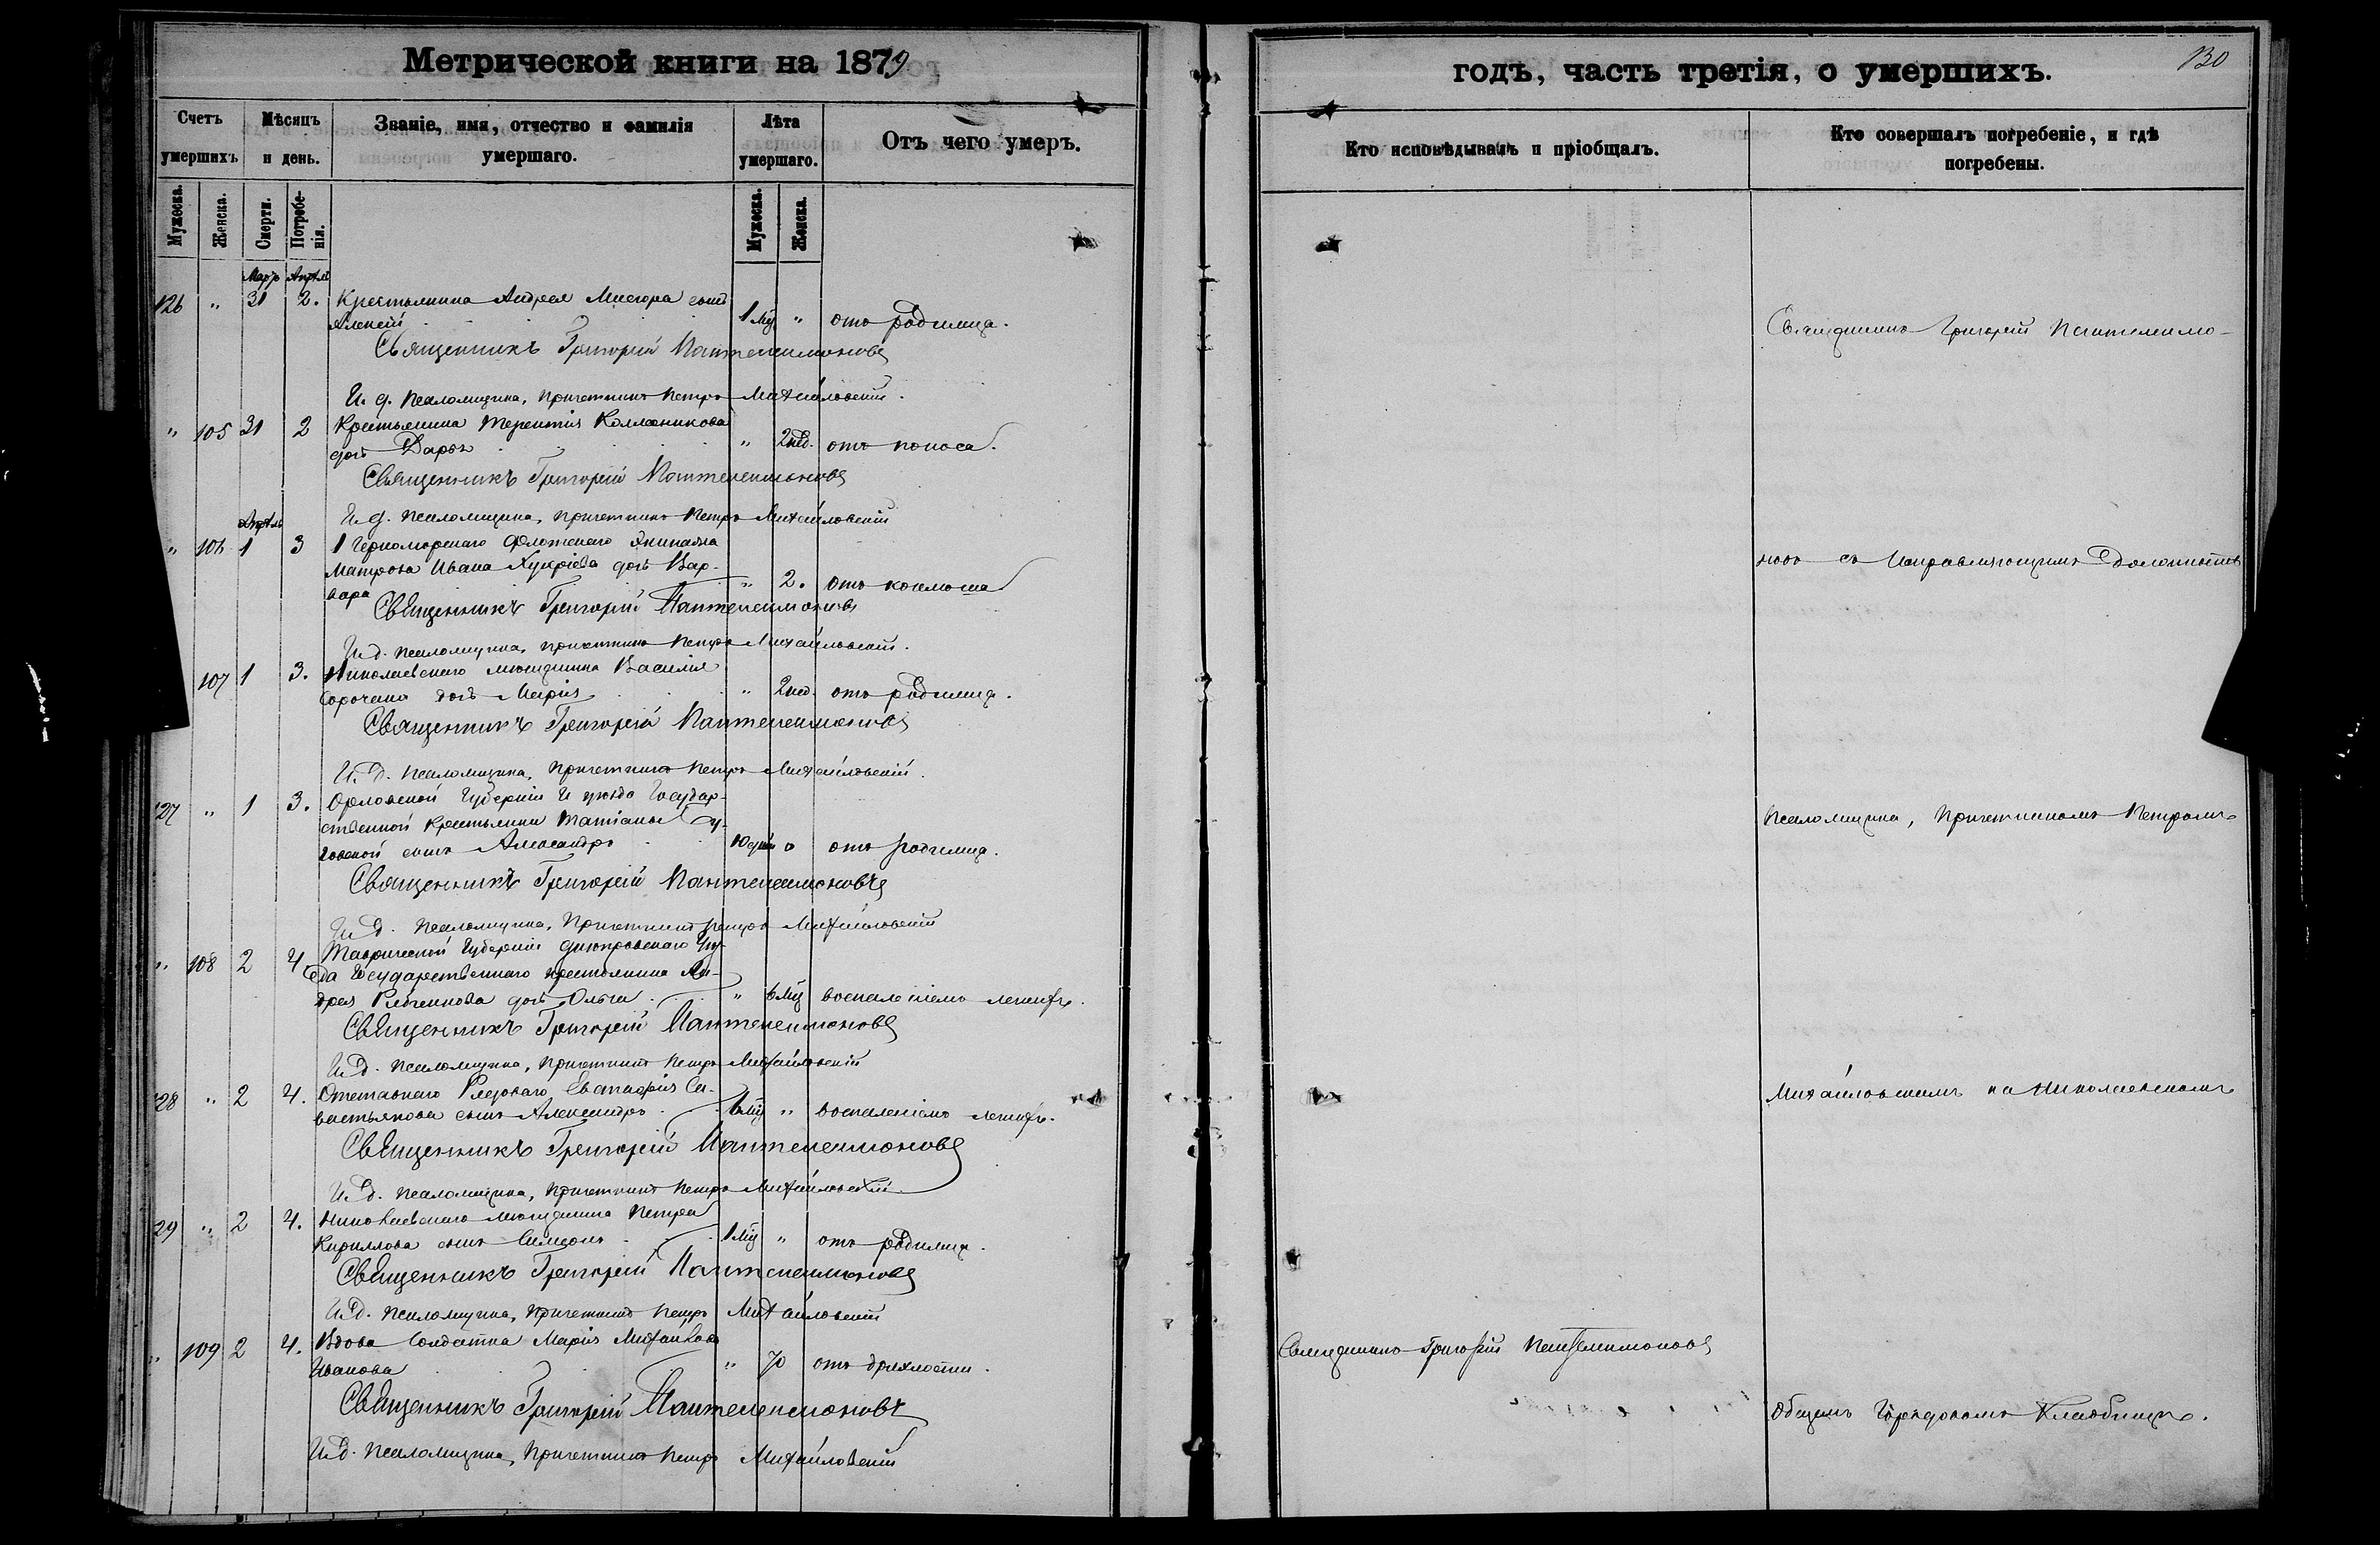 Метрической книги на 1879
годъ, часть третія, о умершихъ.
130
Счетъ умершихъ
Мѣсяцъ и день.
Званіе, имя, отчество и фамилія умершаго.
Лѣта умершаго.
Отъ чего умеръ.
Кто исповѣдывалъ и пріобщалъ.
Кто совершалъ погребеніе, и гдѣ погребены.
Мужеска.
Женска.
Смерти.
Погребенія.
Мужеска.
Женска.
Мартъ Апрѣль
126 " 31 2. Крестьянина Андрея сынъ
Алексѣй 1 мѣ " отъ родимца.
Священникъ Григорій Пантелеимоновъ
И. д. Псаломщика, Причетникъ Петръ Михайловскій.
" 105 31 2 Крестьянина Терентія Колесникова
дочь Дарья " 2 нед. отъ поноса.
Священникъ Григорій Пантелеимоновъ
И. д. Псаломщика, Причетникъ Петръ Михайловскій
Апрѣль
" 106 1 3 1 Черноморскаго Флотскаго Экипажа
Матроса Ивана дочь Вар-
вара " 2. отъ коклюша
Священникъ Григорій Пантелеимоновъ
И. д. Псаломщика, Причетникъ Петръ Михайловскій.
107 1 3. Николаевскаго мѣщанина Василія
Сорочана дочь Марія " 2 нед. отъ родимца.
Священникъ Григорій Пантелеимоновъ
И. д. Псаломщика, Причетникъ Петръ Михайловскій.
127 " 1 3. Орловской Губерніи и уѣзда Государ-
ственной крестьянки Татіаны
сынъ Александръ 10 дней " отъ родимца.
Священникъ Григорій Пантелеимоновъ
И. д. Псаломщика, Причетникъ Петръ Михайловскій
" 108 2 4. Таврической Губерніи Днѣпровскаго Уѣз-
да Государственнаго крестьянина Ан-
дрея Рябчикова дочь Ольга " 6 мѣ воспаленіемъ легкихъ.
Священникъ Григорій Пантелеимоновъ
И. д. Псаломщика, Причетникъ Петръ Михайловскій
128 " 2 4. Отставнаго Рядоваго Евстафія Се-
вастьянова сынъ Александръ 6 мѣ " воспаленіемъ легкихъ.
Священникъ Григорій Пантелеимоновъ
И. д. Псаломщика, Причетникъ Петръ Михайловскій
129 " 2 4. Николаевскаго мѣщанина Петра
Кириллова сынъ Симеонъ 1 мѣ " отъ родимца.
Священникъ Григорій Пантелеимоновъ
И. д. Псаломщика, Причетникъ Петръ Михайловскій
" 109 2 4. Вдова Солдатка Марія Михайлова
Иванова " 70 отъ дряхлости.
Священникъ Григорій Пантелеимоновъ
И. д. Псаломщика, Причетникъ Петръ Михайловскій
Священникъ Григорій Пантелеимоновъ
Священникъ Григорій Пантелеимо-
новъ съ Исправляющимъ должность
Псаломщика, Причетникомъ Петромъ
Михайловскимъ на Николаевскомъ
Общемъ Городовомъ Кладбищѣ.